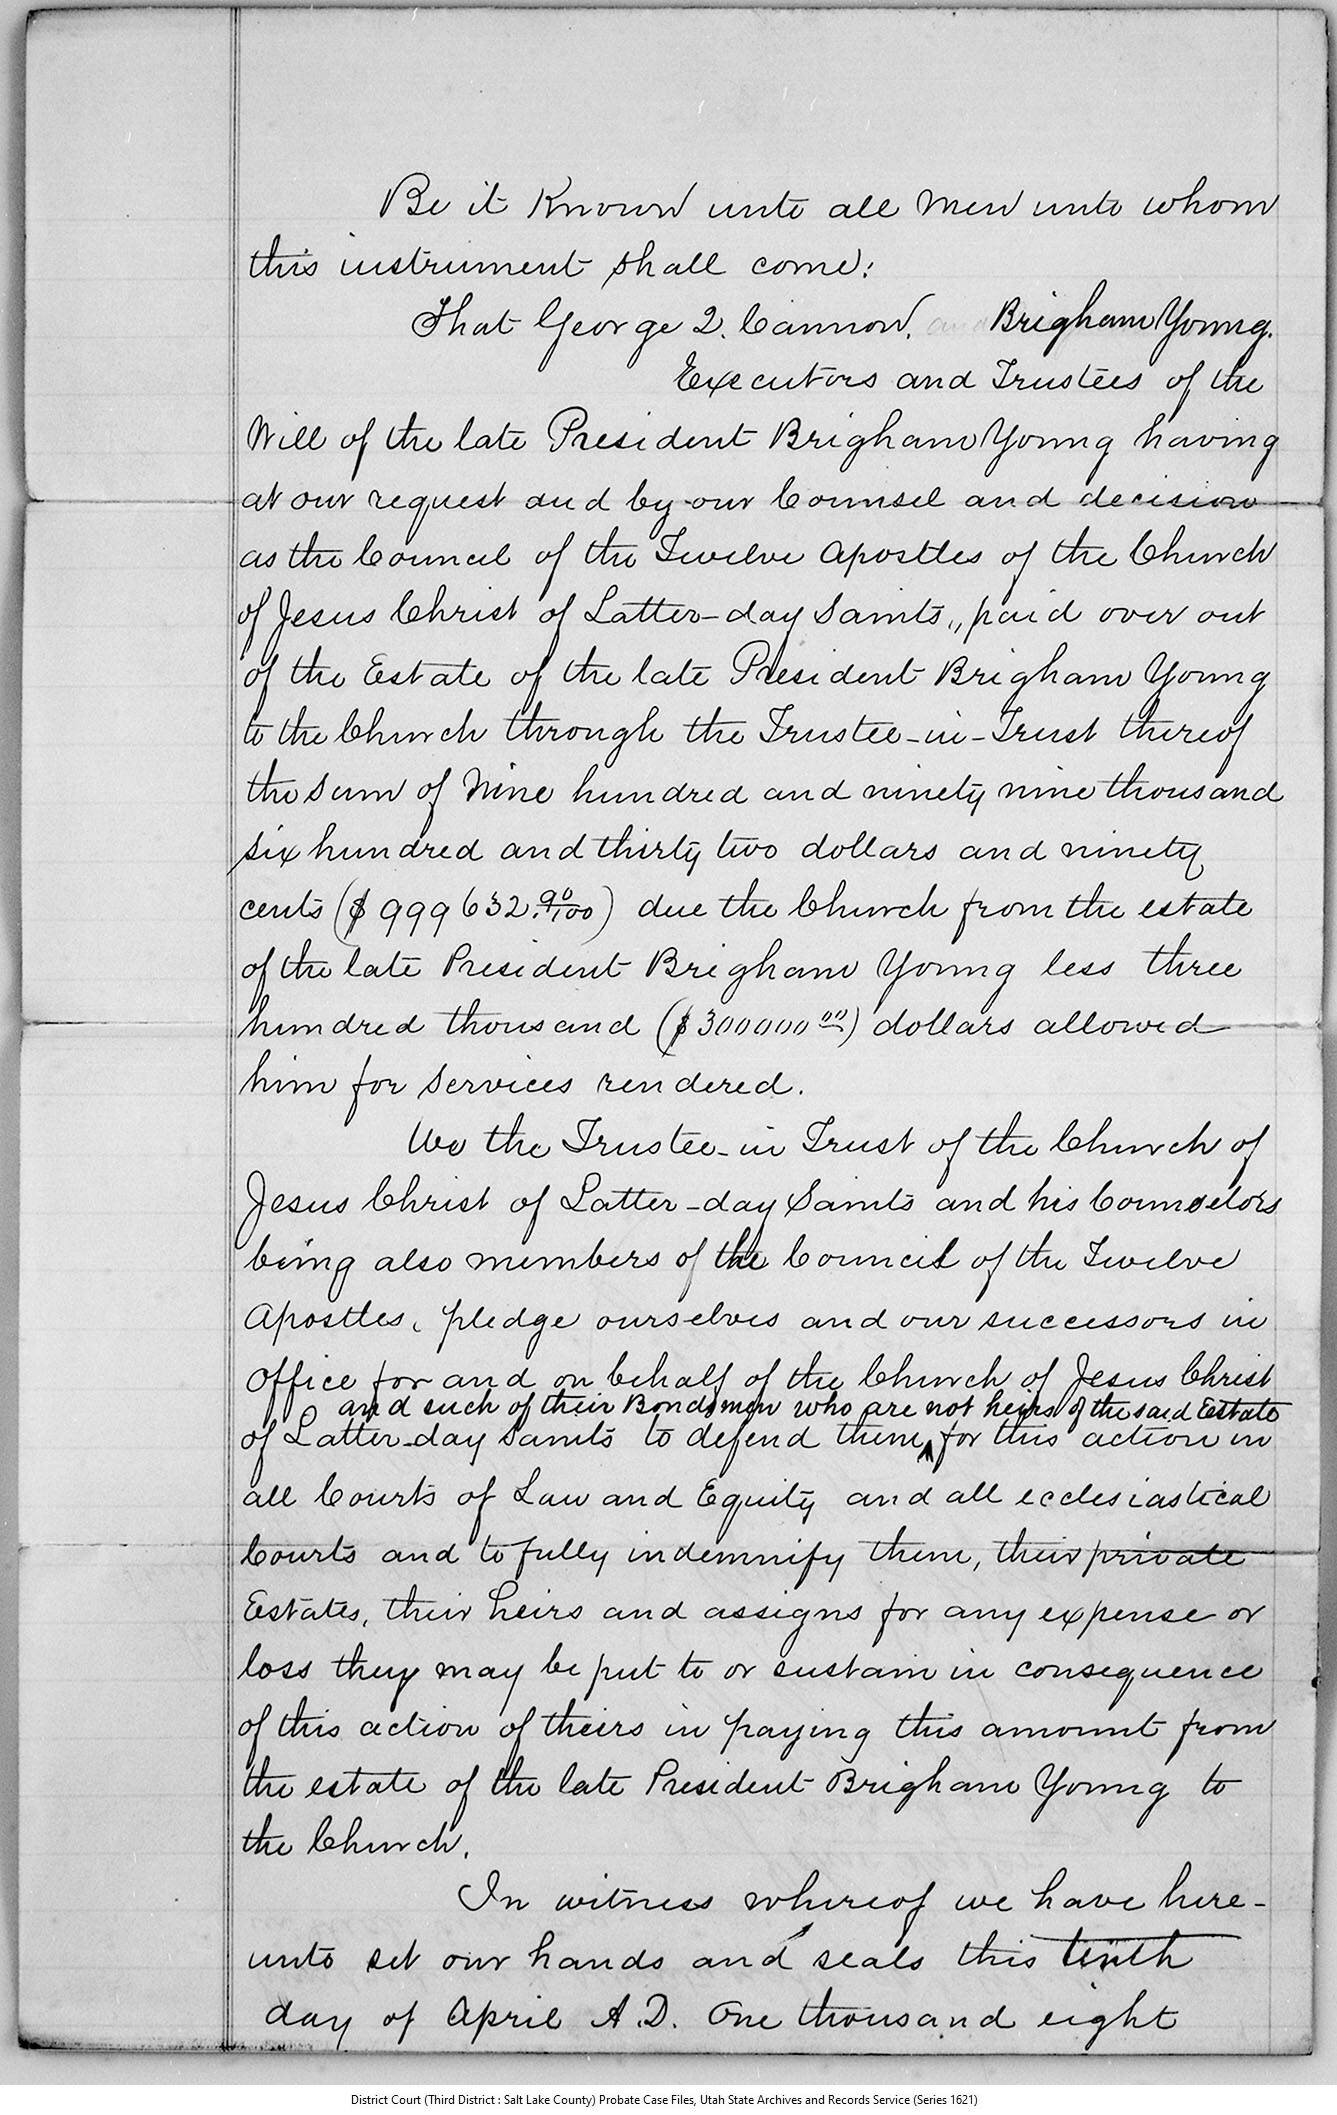 Be it Known unto all Men unto whom
this instrument shall come:
That George Q. Cannon, and Brigham Young.
Executors and Trustees of the
Will of the late President Brigham Young having
at our request and by our Counsel and decision
as the Council of the Twelve Apostles of the Church
of Jesus Christ of Latter-day Saints,, paid over out
of the Estate of the late President Brigham Young
to the Church through the Trustee-in-Trust thereof
the sum of Nine hundred and ninety nine thousand
six hundred and thirty two dollars and ninety
cents ($999632.90/100) due the Church from the estate
of the late President Brigham Young less three
hundred thousand ($300000 00) dollars allowed
him for services rendered.
We the Trustee-in Trust of the Church of
Jesus Christ of Latter-day Saints and his Counselors
being also members of the Council of the Twelve
Apostles, pledge ourselves and our successors in
office for and on behalf of the Church of Jesus Christ
and such of their Bondsmen who are not heirs of the said Estate
of Latter-day Saints to defend them ^ for this action in
all Courts of Law and Equity and all ecclesiastical
Courts and to fully indemnify them, their private
Estates, their heirs and assigns for any expense or
loss they may be put to or sustain in consequence
of this action of theirs in paying this amount from
the estate of the late President Brigham Young to
the Church.
In witness whereof we have here-
unto set our hands and seals this tenth
day of April A.D. One thousand eight
District Court (Third District : Salt Lake County) Probate Case Files, Utah State Archives and Records Service (Series 1621)